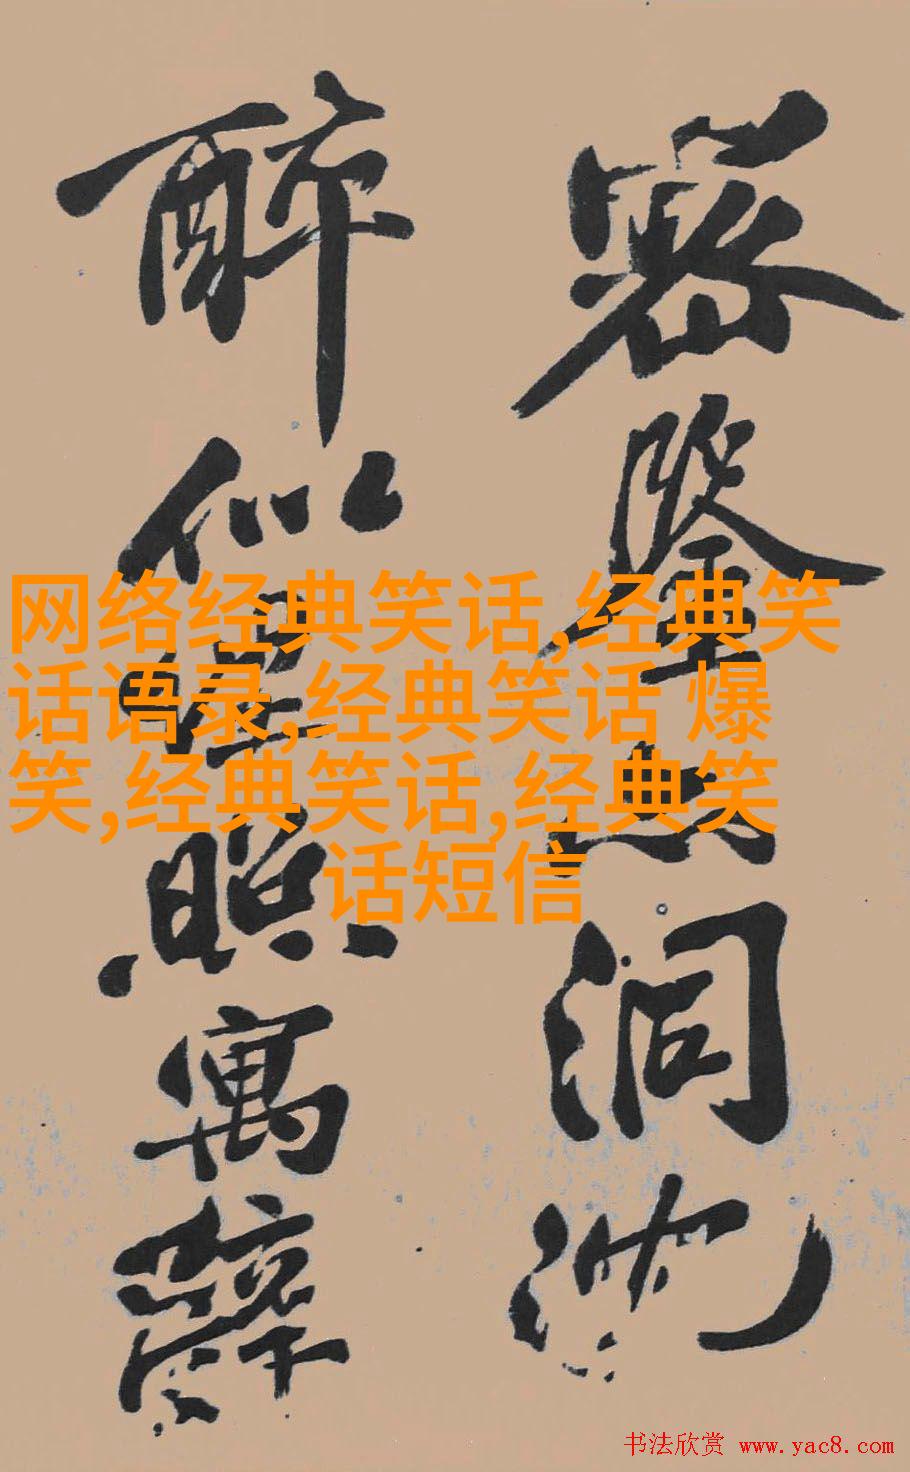 密鑒亦洞沈
醉似埋照寓辭
网络经典笑话,经典笑
话语录,经典笑话 爆
笑,经典笑话,经典笑
话短信
书法欣赏 www.yac8.com